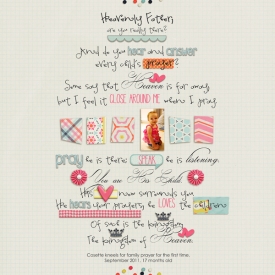 Heavenly Father,
are you really there?
And do you hear and answer
every child's prayer?
Some say that Heaven is far away
but I feel it CLOSE AROUND ME when I pray.
pray he is there; SPEAK he is listening.
You are His Child.
His now surrounds you
He hears your prayers, he LOVES the children
Of such is the kingdom
The kingdom of Heaven.
Cosette kneels for family prayer for the first time.
September 2011, 17 months old